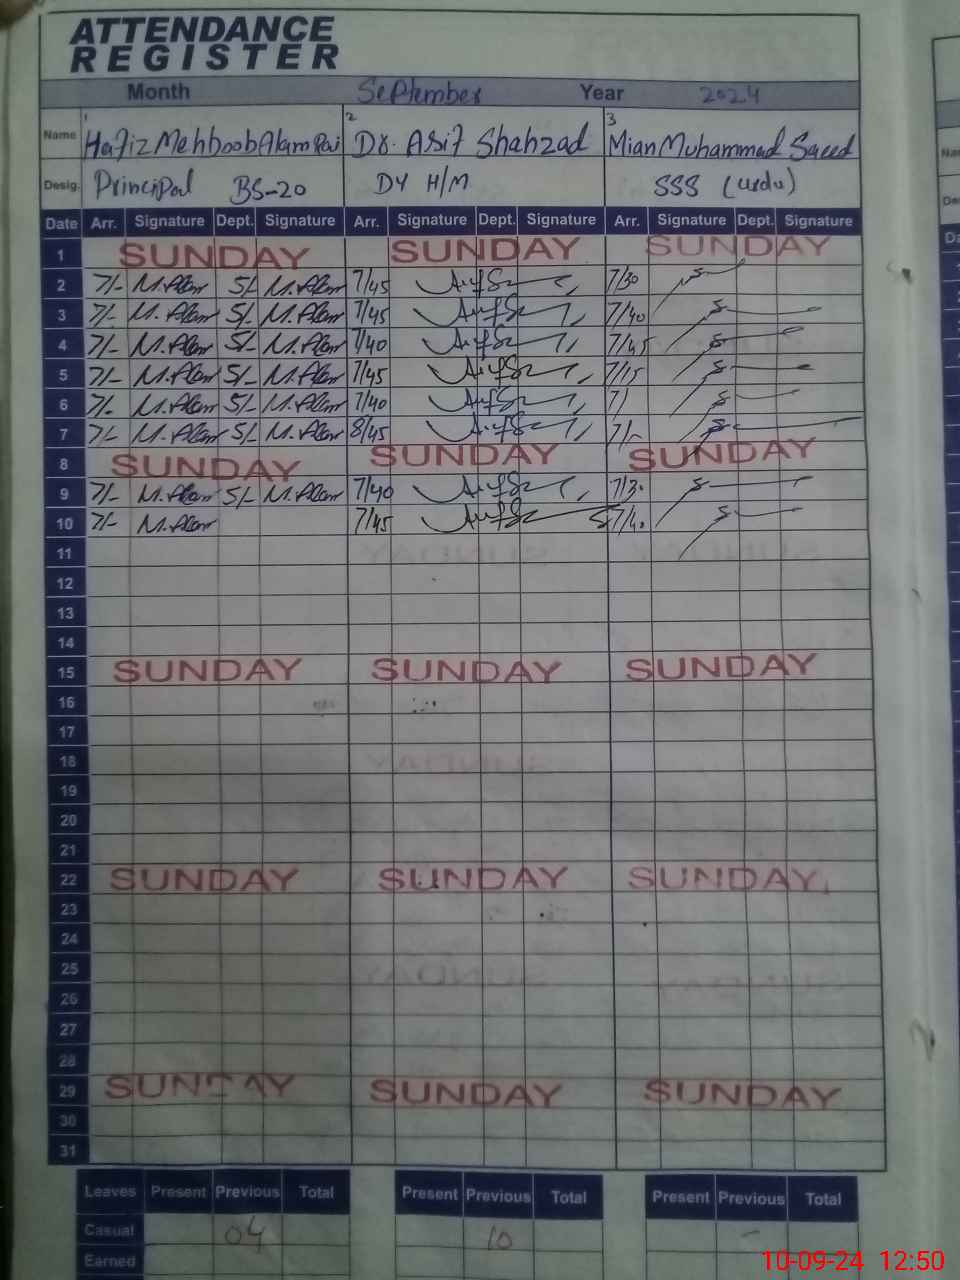 ATTENDANCE
REGISTER
Month September Year 2024
1 2 3
Name Hafiz Mehboob Alam Dr. Asif Shahzad Mian Muhammad Saeed
Desig. Principal BS-20 DY H/M SSS (Urdu)
Date Arr. Signature Dept. Signature Arr. Signature Dept. Signature Arr. Signature Dept. Signature
1 SUNDAY SUNDAY SUNDAY
2 7/- M.Alam 5/- M.Alam 7/45 7/30
3 7/- M.Alam 5/- M.Alam 7/45 7/40
4 7/- M.Alam 5/- M.Alam 7/40 7/45
5 7/- M.Alam 5/- M.Alam 7/45 7/15
6 7/- M.Alam 5/- M.Alam 7/40 7/
7 7/- M.Alam 5/- M.Alam 8/45 7/-
8 SUNDAY SUNDAY SUNDAY
9 7/- M.Alam 5/- M.Alam 7/40 7/30
10 7/- M.Alam 7/45 7/40
11
12
13
14
15 SUNDAY SUNDAY SUNDAY
16
17
18
19
20
21
22 SUNDAY SUNDAY SUNDAY
23
24
25
26
27
28
29 SUNDAY SUNDAY SUNDAY
30
31
Leaves Present Previous Total Present Previous Total Present Previous Total
Casual 04 10 -
Earned
10-09-24 12:50